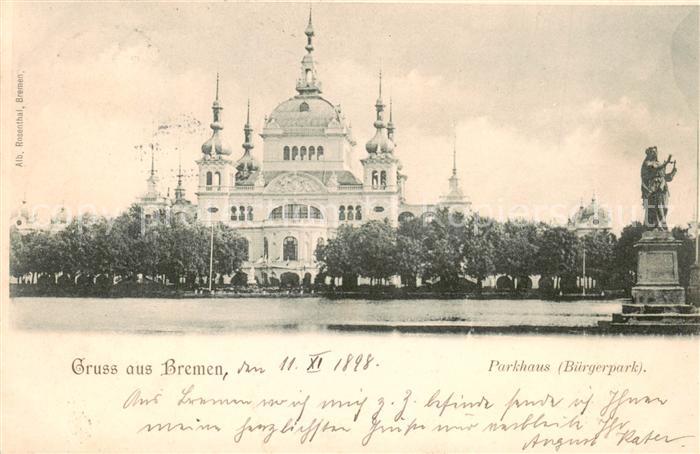 Alb. Rosenthal, Bremen.
Gruss aus Bremen, den 11 XI 1898.
Parkhaus (Bürgerpark).
Aus Bremen wo ich mich z. Z. befinde sende ich Ihnen
meine herzlichsten Grüße und verbleibe Ihr
August Kater